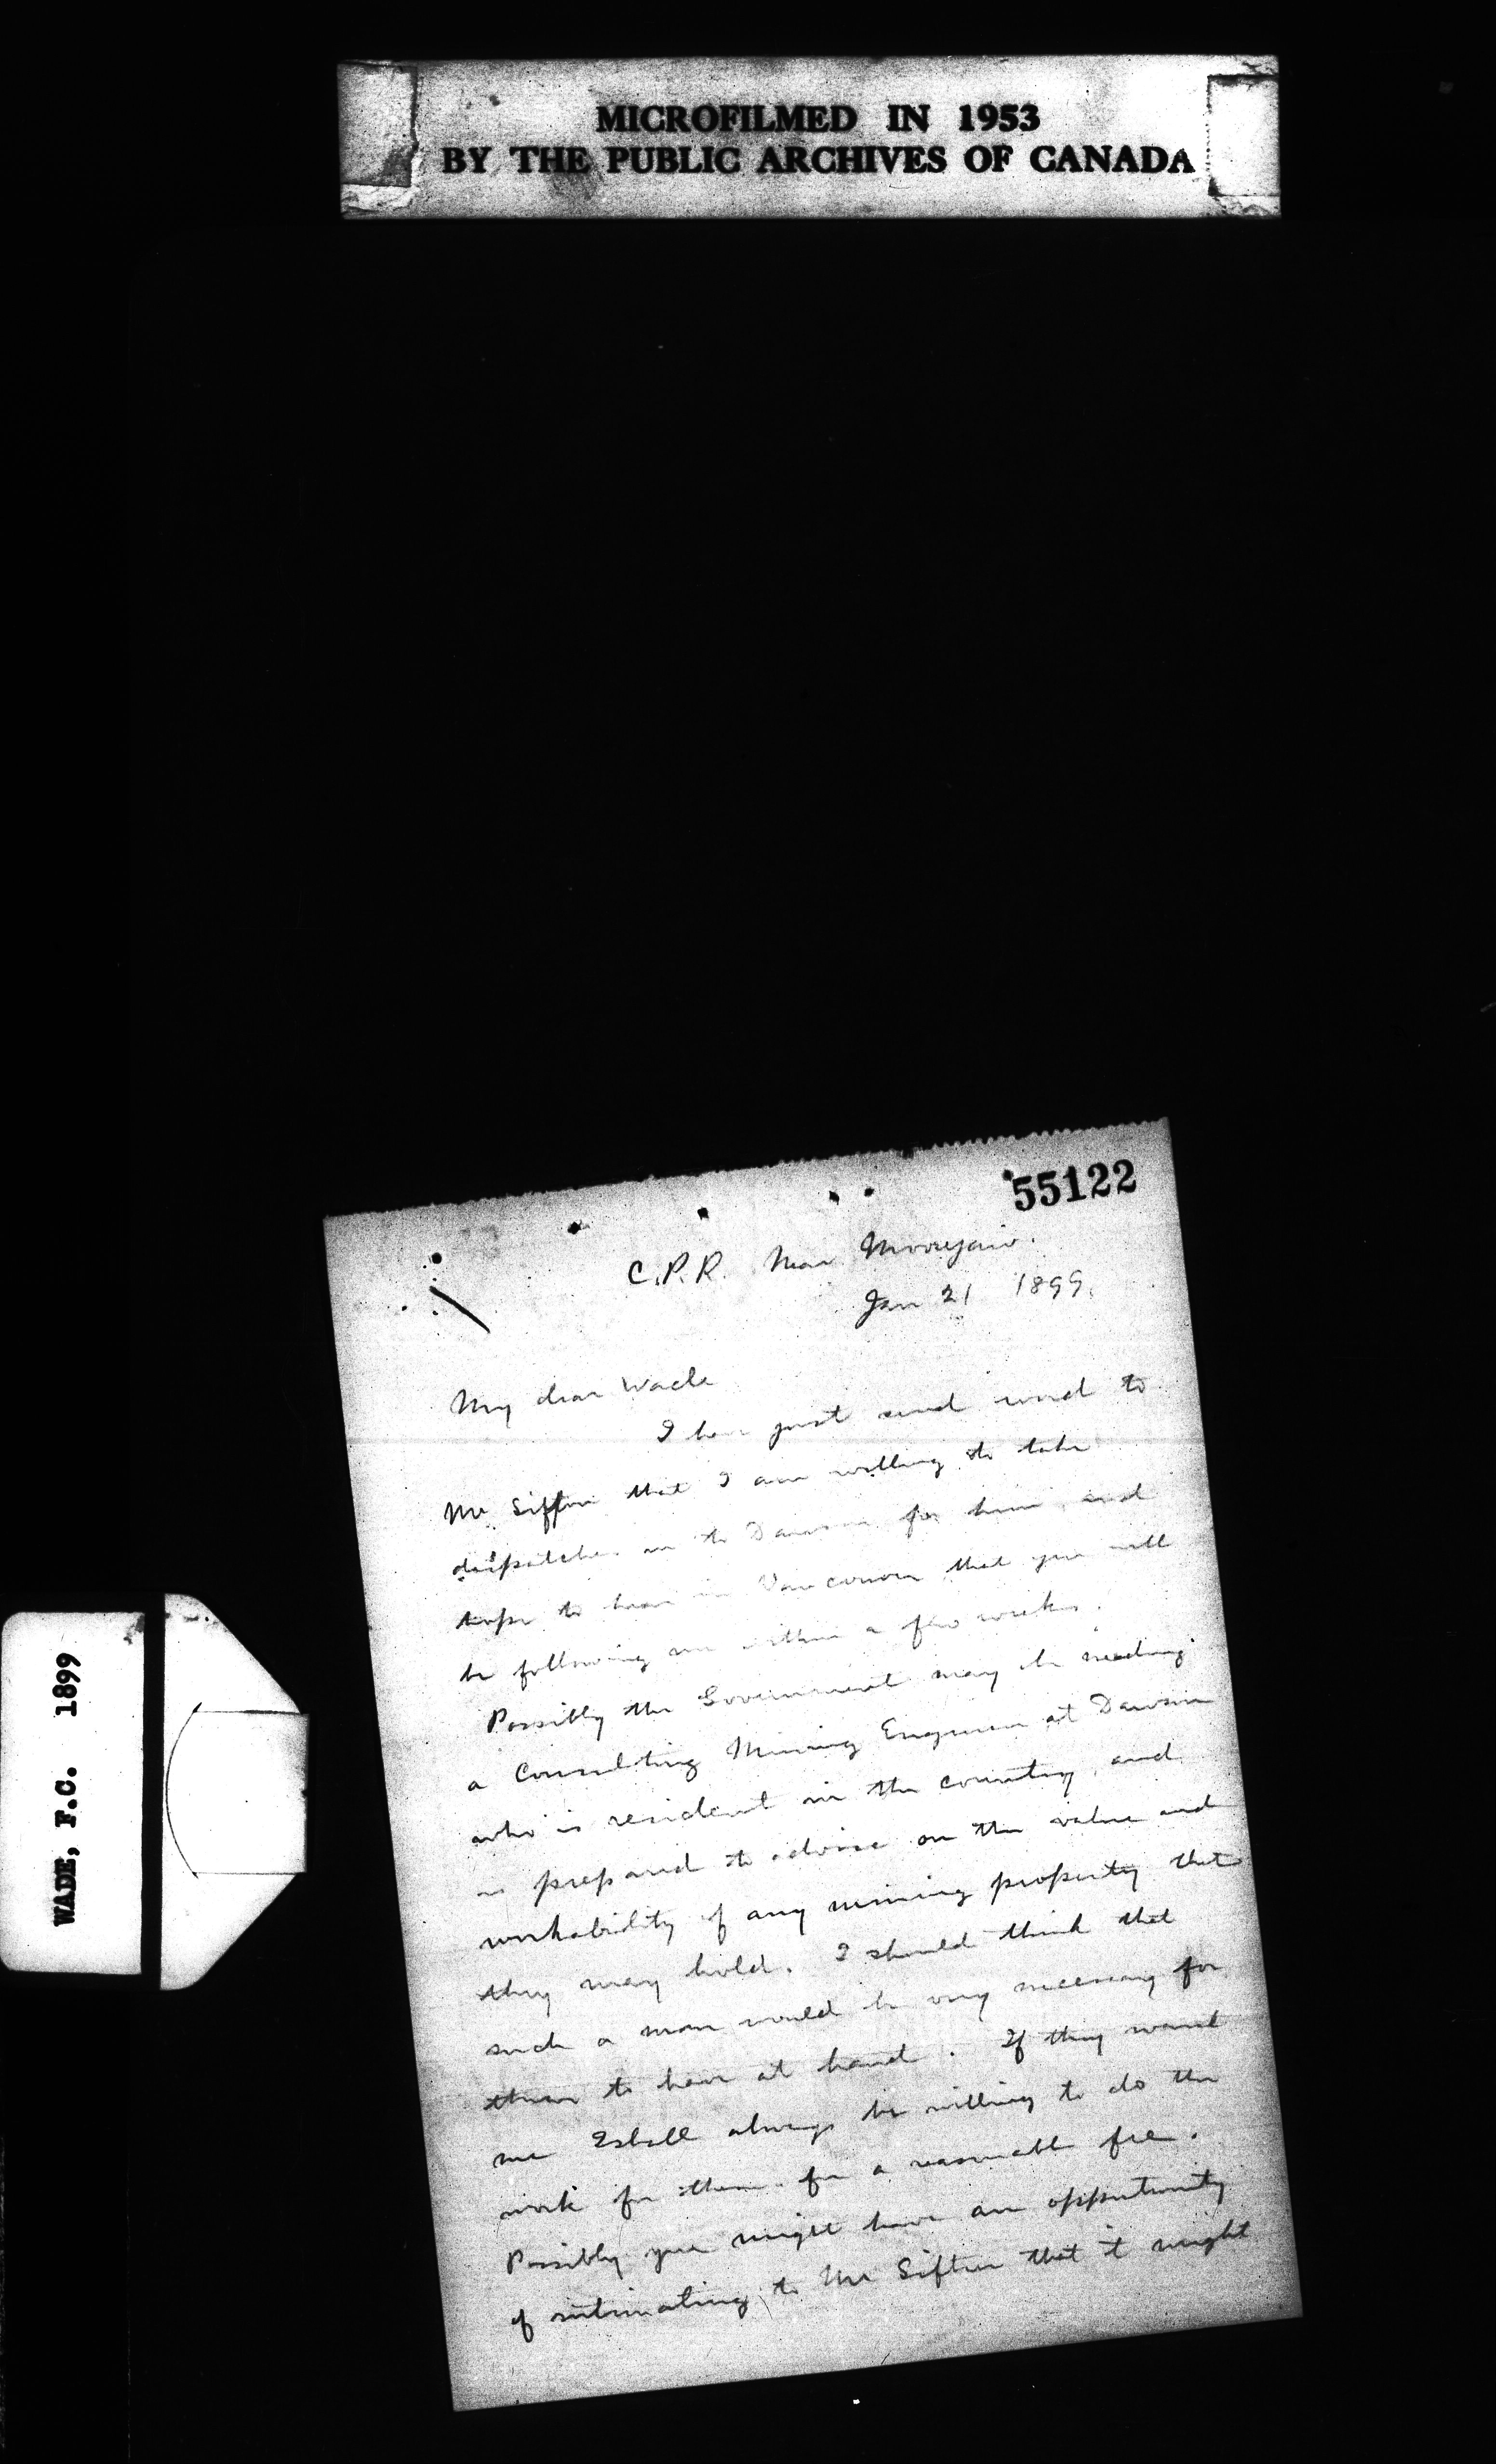 MICROFILMED IN 1953
BY THE PUBLIC ARCHIVES OF CANADA
55122
C.P.R. Near Moosejaw.
Jan 21 1899.
My dear Wade
I have just send word to
Mr Sifton that I am willing to take
dispatches in to Dawson for him, and
hope to hear in Vancouver that you will
be following me within a few weeks.
Possibly the Government may be needing
a Consulting Mining Engineer at Dawson
who is resident in the country, and
is prepared to advise on the value and
workability of any mining property that
they may hold. I should think that
such a man would be very necessary for
them to have at hand. If they want
me I shall always be willing to do the
work for them for a reasonable fee.
Possibly you might have an opportunity
of intimating to Mr Sifton that it might
WADE, F.C. 1899